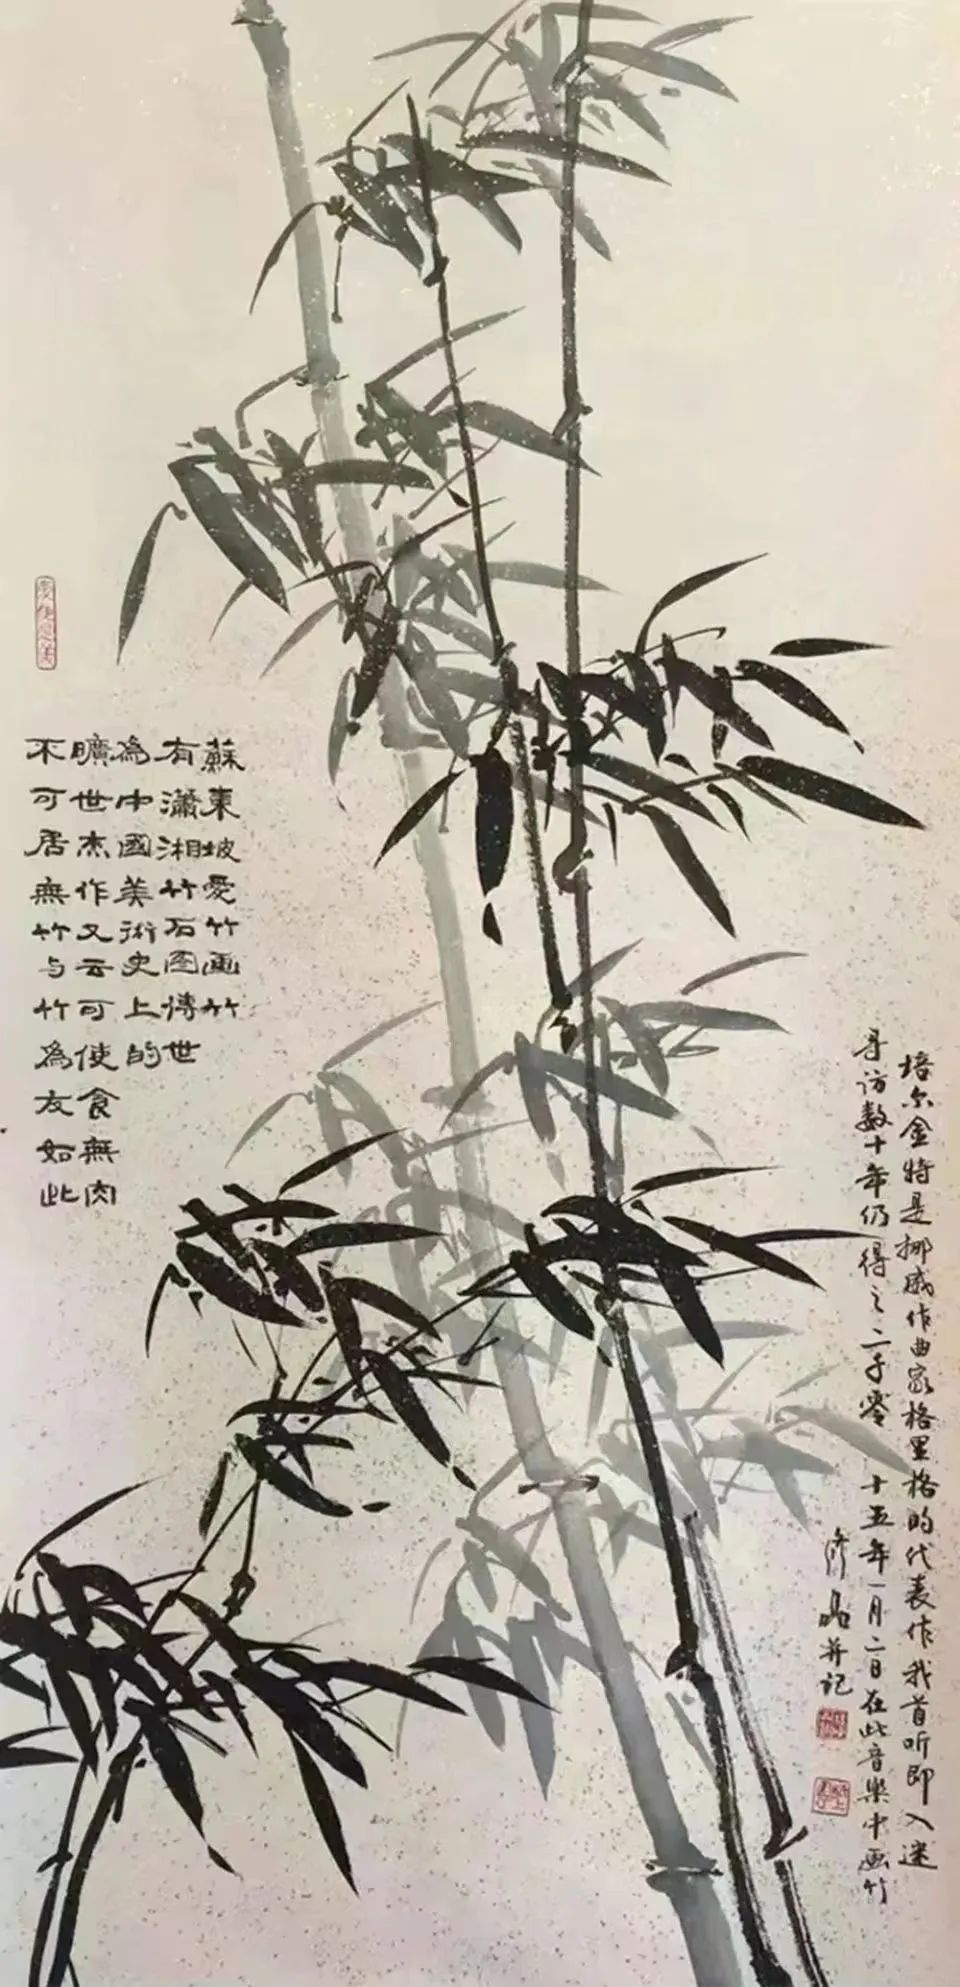 蘇東坡愛竹画竹
有瀟湘竹石图傳世
為中國美術史上的
曠世杰作又云可使食無肉
不可居無竹与竹為友如此
培尔金特是挪威作曲家格里格的代表作我首听即入迷
寻访数十年仍得之二千零十五年一月二日在此音樂中画竹
并记